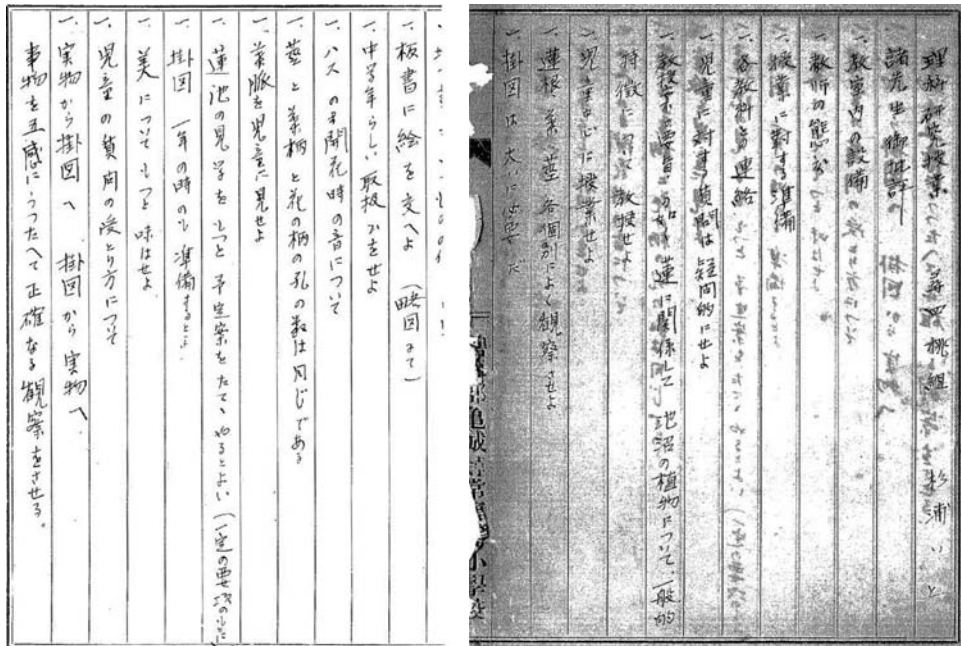 理科研究授業 尋四桃組 杉浦いと
諸先生御批評
一、教室内の設備
一、教師の態度
一、授業に対する準備
一、各教科の連絡
一、児童に対する質問は疑問的にせよ
一、蓮に関係して池沼の植物について、一般的
特徴に 教授せよ
一、児童 に授業せよ
一、蓮根、葉、茎 各個別によく観察させよ
一、掛図は大いに必要だ
一、板書に絵を交へよ (略図にて)
一、中学年らしい取扱をせよ
一、ハスの開花時の音について
一、茎と葉柄と花の柄の孔の数は同じである
一、葉脈を児童に見せよ
一、蓮池の見学をもっと予定案をたてゝやるとよい (一定の要項の
一、掛図 一年の時のも準備するとよい
一、美についてもっと味はせよ
一、児童の質問の受とり方について
一、実物から掛図へ 掛図から実物へ
事物を五感にうつたへて正確なる観察をさせる。
亀城尋常高等小學校